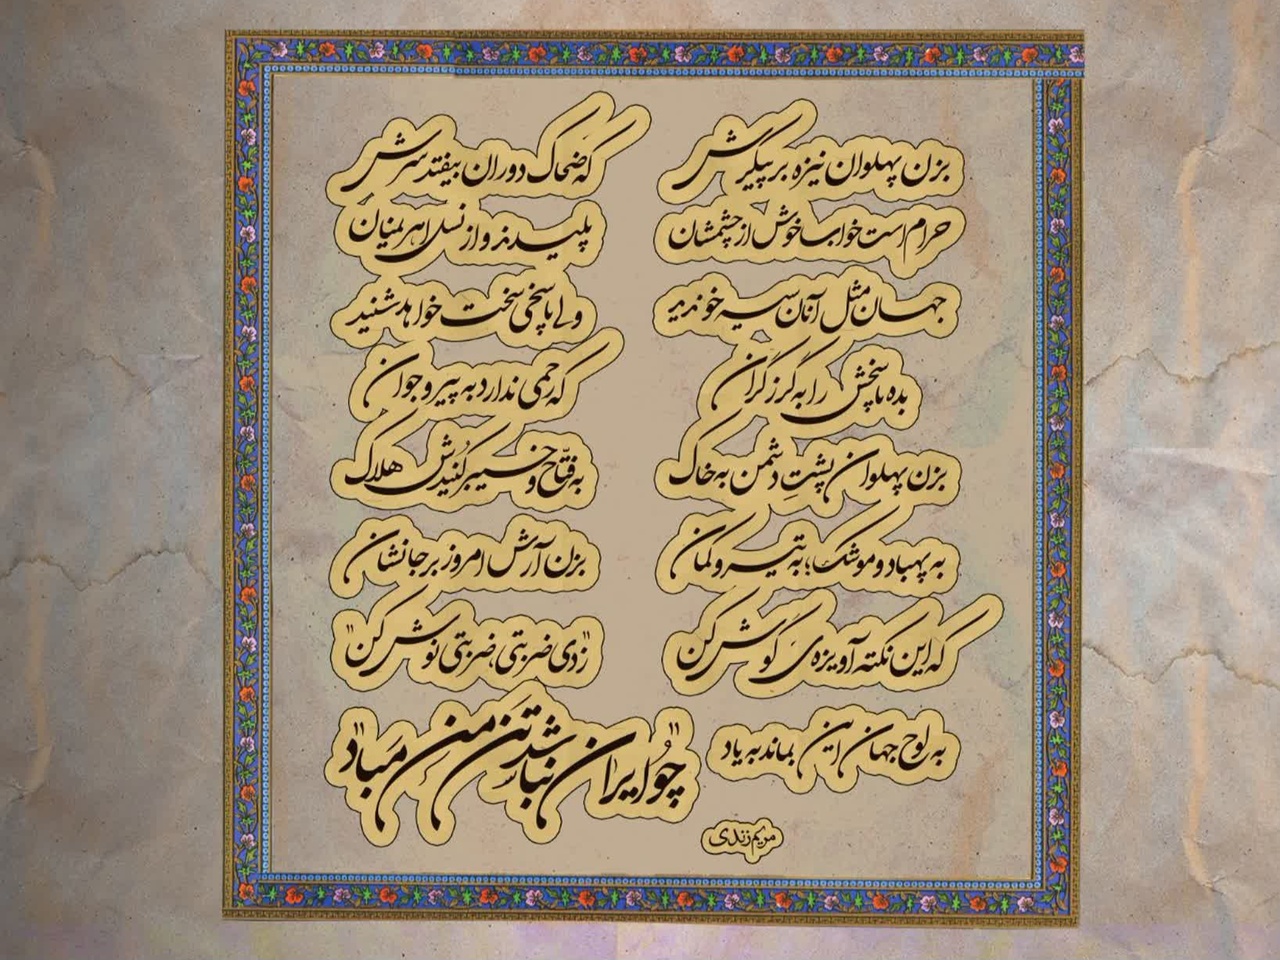 بزن پهلوان نیزه بر پیکرش که ضحاک دوران بیفتد سرش
حرام است خواب خوش از چشمشان پلیدند و از نسل اهریمنیان
جهان مثل آنان سیه خو ندید ولی پاسخی سخت خواهد شنید
بده پاسخش را به گرز گران که رحمی ندارد به پیر و جوان
بزن پهلوان پشتِ دشمن به خاک به فتّاح و خیبر کُنیدش هلاک
به پهباد و موشک؛ به تیر و کمان بزن آرش امروز بر جانشان
که این نکته آویزه‌ی گوش کن "زدی ضربتی، ضربتی نوش کن"
به لوح جهان این بماند به یاد "چُو ایران نباشد تن من مَباد"
مریم زندی